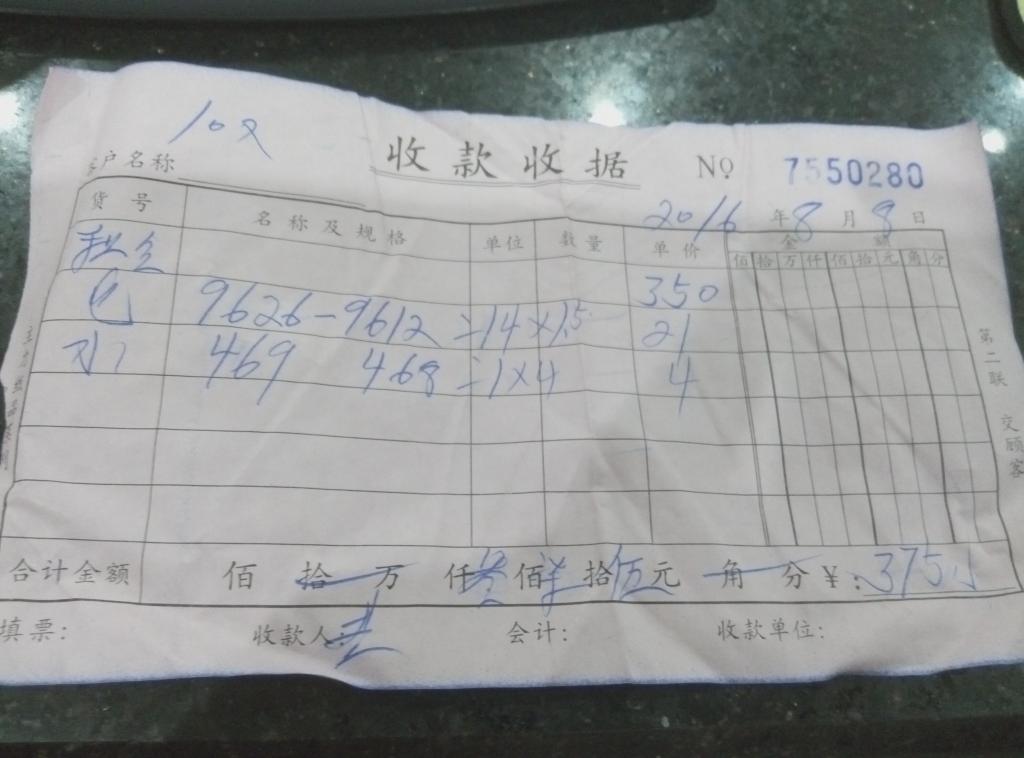 收款收据 No 7550280
客户名称
2016年8月9日
货号 名称及规格 单位 数量 单价 金额
佰拾万仟佰拾元角分
租金 350
电 9626-9612=14×1.5 21
水 469 468=1×4 4
第二联 交顾客
合计金额 佰拾万仟叁佰柒拾伍元角分¥:375
填票: 收款人: 会计: 收款单位: